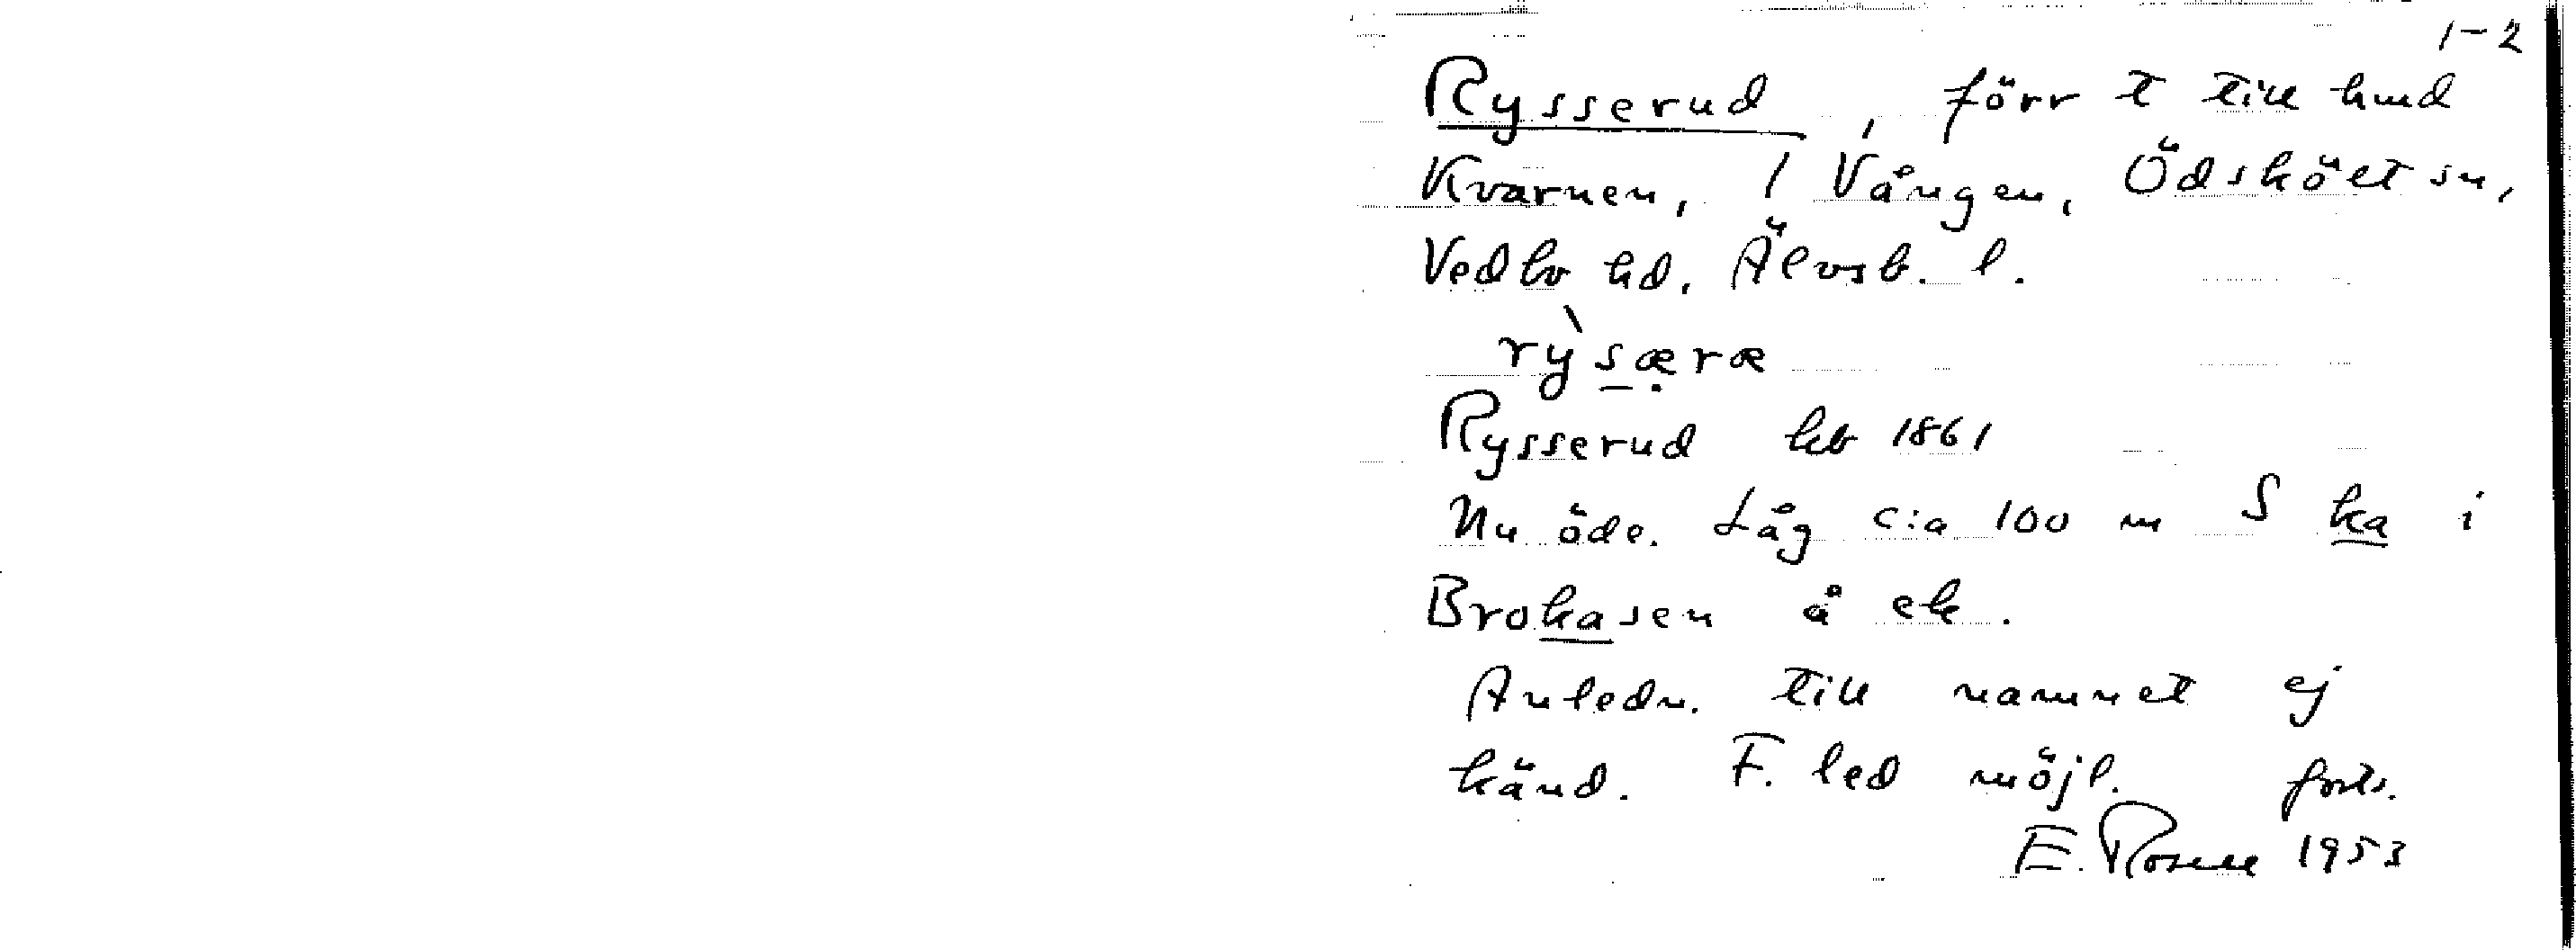 1-2
Rysserud, förr t till hmd
Kvarnen, 1 Vången, Ödsköet sn,
Vedbo hd, Älvsb. l.
rỳsæræ
Rysserud hb 1861
Nu öde. Låg c:a 100 m S ka i
Brokasen å ek.
Anledn. till namnet ej
känd. F. led möjl. forts.
E. Rosell 1953